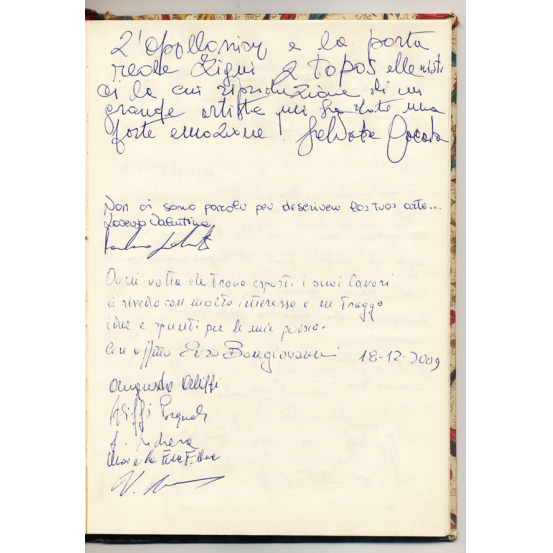 L'Apollonion e la porta
reale Ligni 2 topos ellenisti
ci la cui riproduzione di un
grande artista mi ha dato una
forte emozione! Salvatore
Non ci sono parole per descrivere la tua arte...
Lorenzo Valentino
Ogni volta che trovo esposti i suoi lavori
li rivedo con molto interesse e ne traggo
idee e spunti per le mie poesie.
Con affetto Enzo Bongiovanni 18-12-2009
Augusto Aliffi
Aliffi